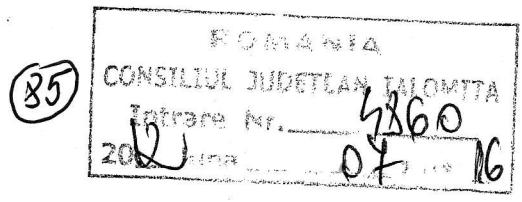 85
ROMANIA
CONSILIUL JUDETEAN IALOMITA
Intrare Nr. 4860
2012 luna 07 16